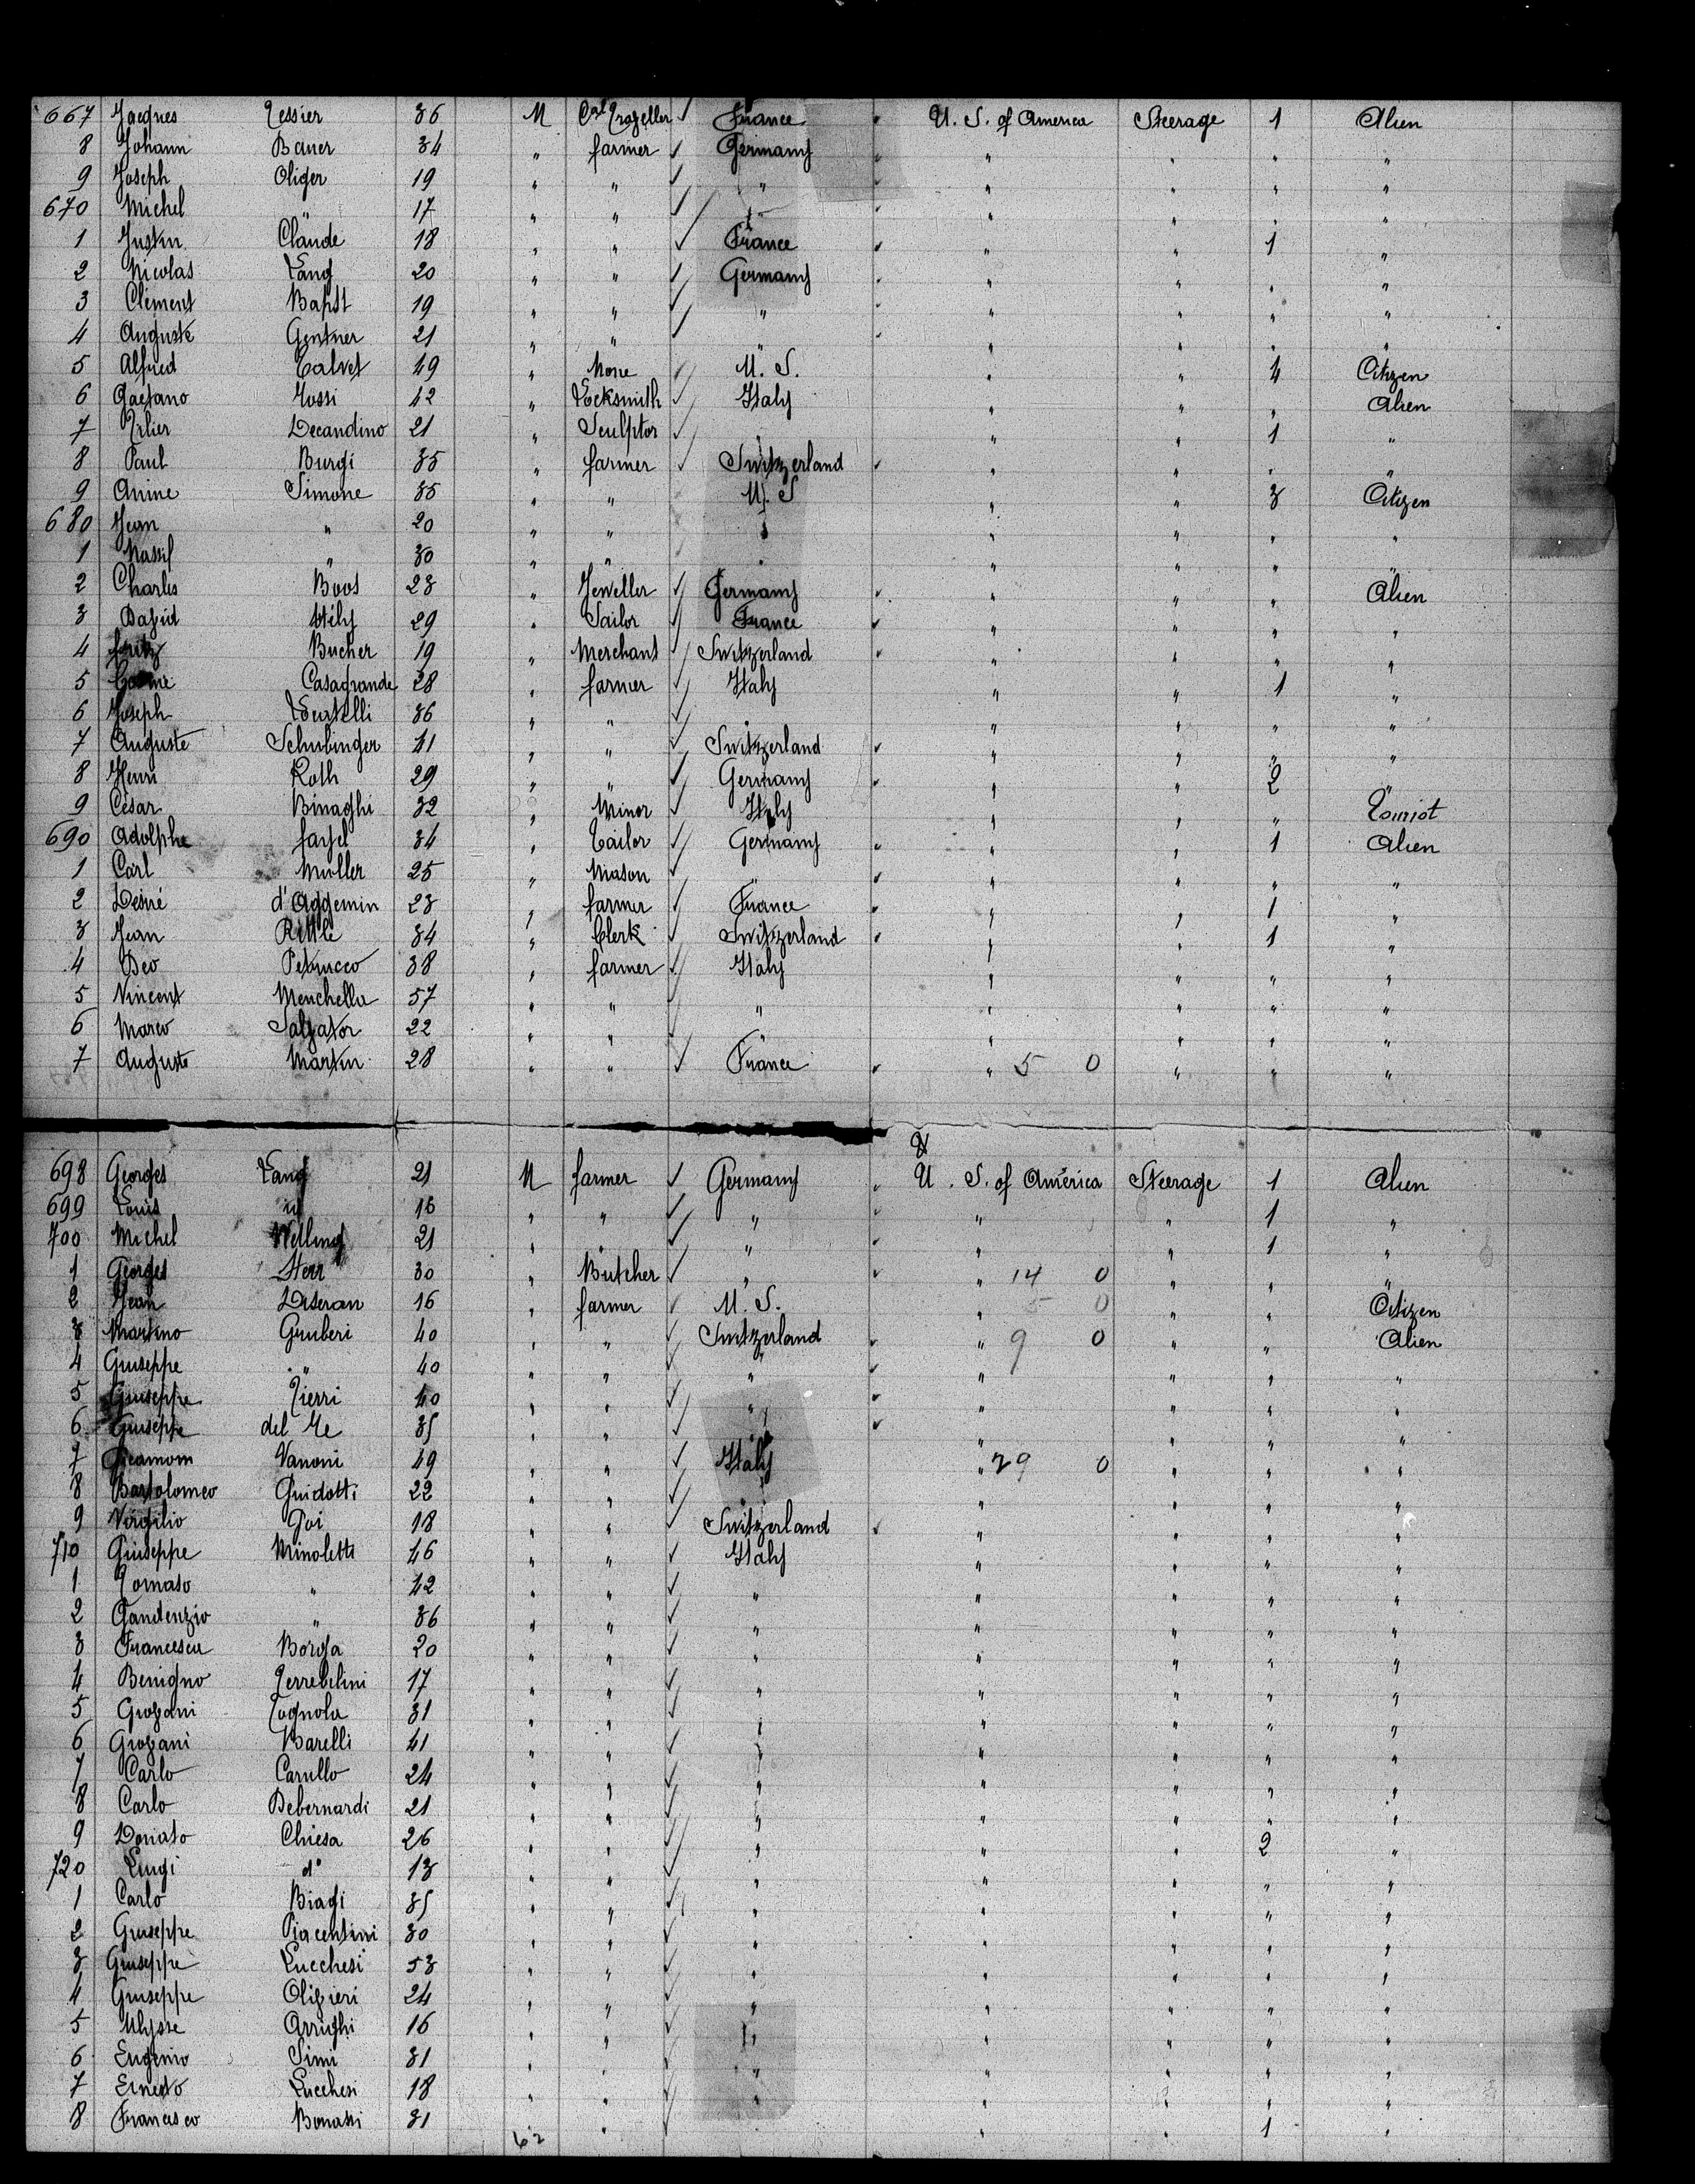 667 Jacques Tessier 36 M Cal Traveller ✓ France U. S. of America Steerage 1 Alien
8 Johann Bauer 34 " farmer ✓ Germany " " " "
9 Joseph Oliger 19 " " ✓ " " " " "
670 Michel " 17 " " ✓ " " " " "
1 Justin Claude 18 " " ✓ France " " 1 "
2 Nicolas Lang 20 " " ✓ Germany " " " "
3 Clément Bapst 19 " " ✓ " " " " "
4 Auguste Gentner 21 " " ✓ " " " " "
5 Alfred Calvet 49 " None ✓ U. S. " " 4 Citizen
6 Gaetano Jossi 42 " Locksmith ✓ Italy " " " Alien
7 Decandino 21 " Sculptor ✓ " " " 1 "
8 Paul Burgi 35 " farmer ✓ Switzerland " " " "
9 Anine Simone 35 " " U. S " " 3 Citizen
680 Jean " 20 " " " " " " "
1 Nassif " 30 " " " " " " "
2 Charles Boos 23 " Jeweller ✓ Germany " " " Alien
3 David Hély 29 " Sailor ✓ France " " " "
4 Fritz Bucher 19 " Merchant ✓ Switzerland " " " "
5 Casagrande 28 " farmer ✓ Italy " " 1 "
6 Joseph 36 " " ✓ " " " " "
7 Auguste Schubinger 41 " " ✓ Switzerland " " " "
8 Henri Roth 29 " " ✓ Germany " " 2 "
9 César Binaghi 32 " Minor ✓ Italy " " " Tourist
690 Adolphe 34 " Tailor ✓ Germany " " 1 Alien
1 Carl Muller 25 " Mason ✓ " " " " "
2 Désiré d'Aggemin 23 " farmer ✓ France " " 1 "
3 Jean Rittlé 34 " Clerk ✓ Switzerland " " 1 "
4 Deo Petrucco 38 " farmer ✓ Italy " " " "
5 Vincent Menchella 57 " " ✓ " " " " "
6 Marco Salvator 22 " " ✓ " " " " "
7 Auguste Martin 28 " " ✓ France " 5 0 " " "
698 Georges Lang 21 M farmer ✓ Germany U. S. of América Steerage 1 Alien
699 Louis id 16 " " ✓ " " " 1 "
700 Michel Welling 21 " " ✓ " " " 1 "
1 Georges Herr 30 " Butcher ✓ " " 14 0 " " "
2 Jean Diseran 16 " farmer ✓ U. S. " 5 0 " " Citizen
3 Martino Gruberi 40 " " ✓ Switzerland " 9 0 " " Alien
4 Giuseppe " 40 " " ✓ " " " " "
5 Giuseppe Pierri 40 " " ✓ " " " " "
6 Giuseppe del Me 35 " " ✓ " " " " "
7 Vanoni 49 " " ✓ Italy " 29 0 " " "
8 Bartolomeo Guidotti 22 " " ✓ " " " " "
9 Virgilio Goi 18 " " ✓ Switzerland " " " "
710 Giuseppe Minoletti 46 " " ✓ Italy " " " "
1 Tomaso " 42 " " ✓ " " " " "
2 Gaudenzio " 36 " " ✓ " " " " "
3 Francesca Borga 20 " " ✓ " " " " "
4 Benigno Terrebilini 17 " " ✓ " " " " "
5 Giovani Tognola 31 " " ✓ " " " " "
6 Giovani Barelli 41 " " ✓ " " " " "
7 Carlo Carullo 24 " " ✓ " " " " "
8 Carlo Debernardi 21 " " ✓ " " " " "
9 Donato Chiesa 26 " " ✓ " " " 2 "
720 Luigi d° 13 " " ✓ " " " " "
1 Carlo Biagi 35 " " ✓ " " " " "
2 Giuseppe Piacentini 30 " " ✓ " " " " "
3 Giuseppe Lucchesi 53 " " ✓ " " " " "
4 Giuseppe Olivieri 24 " " ✓ " " " " "
5 Ulysse Arrighi 16 " " ✓ " " " " "
6 Eugenio Simi 31 " " ✓ " " " " "
7 Ernesto Lucchesi 18 " " ✓ " " " " "
8 Francisco Bonassi 31 " ✓ " " 1 "
62